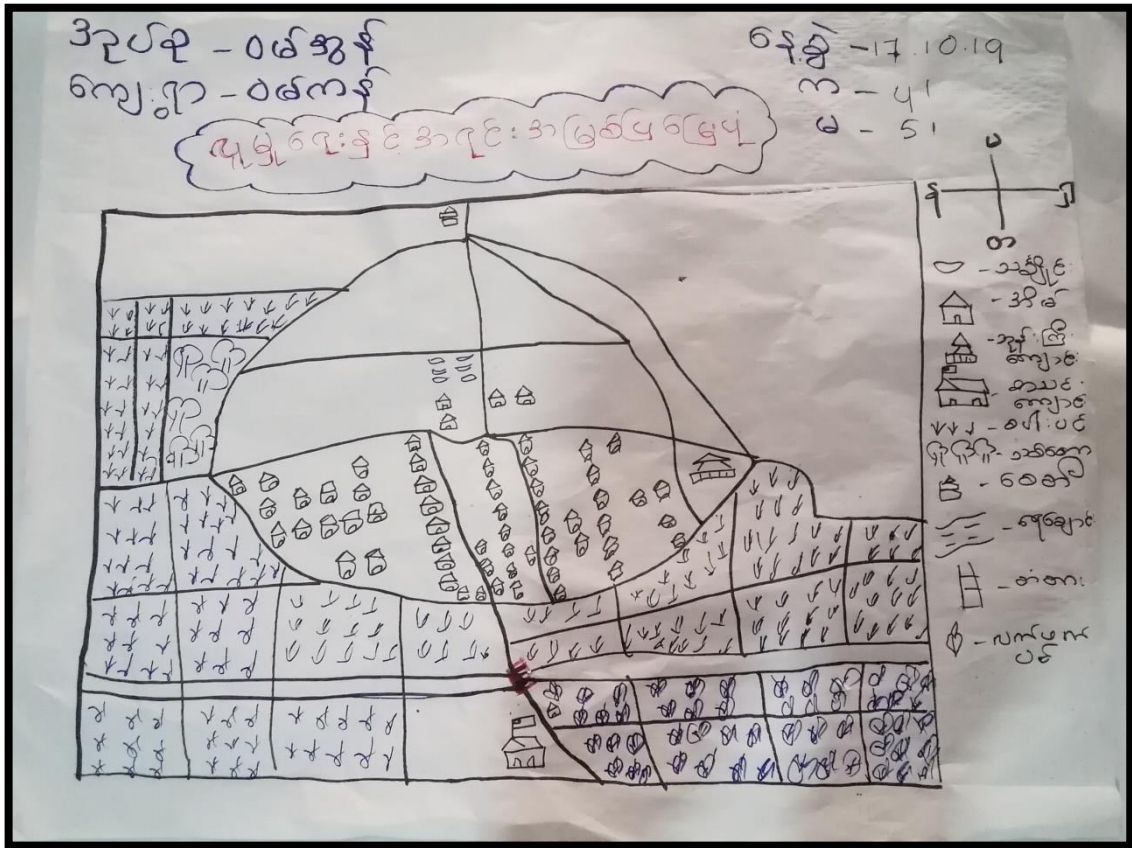 အုပ်စု - ဝမ်အွန်
ကျေးရွာ - ဝမ်ကန်
နေ့စွဲ - 17.10.19
က - ၄၊
မ - 5၊
လူမှုရေးနှင့် အရင်းအမြစ်ပြမြေပုံ
သင်္ချိုင်း
အိမ်
ဘုန်းကြီး
ကျောင်း
စာသင်
ကျောင်း
စပါးပင်
သစ်တော
စေတီ
ရေချောင်း
တံတား
လက်ဖက်
ပင်